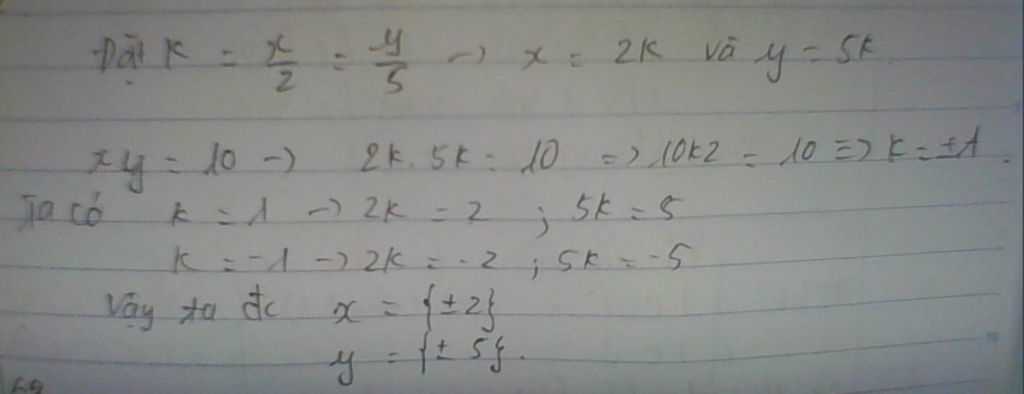 Đặt k = x/2 = y/5 → x = 2k và y = 5k
xy = 10 → 2k. 5k = 10 => 10k2 = 10 => k = ±1.
Ta có k = 1 → 2k = 2 ; 5k = 5
k = -1 → 2k = -2 ; 5k = -5
Vậy ta đc x = {±2}
y = {± 5}.
69